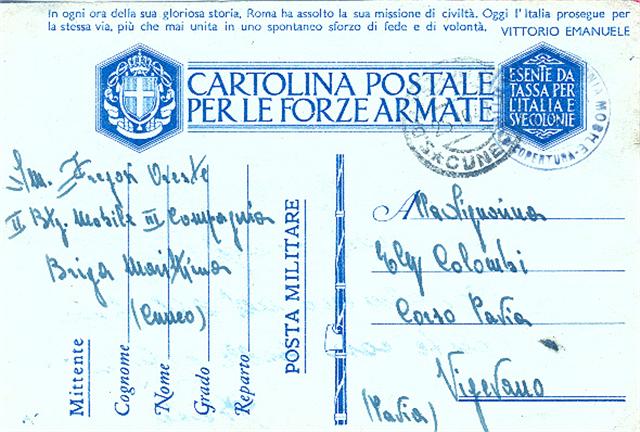 In ogni ora della sua gloriosa storia, Roma ha assolto la sua missione di civiltà. Oggi l'Italia prosegue per
la stessa via, più che mai unita in uno spontaneo sforzo di fede e di volontà. VITTORIO EMANUELE
CARTOLINA POSTALE
PER LE FORZE ARMATE
ESENTE DA
TASSA PER
L'ITALIA E
SVE COLONIE
CUNEO
COPERTURA
Oreste
II Btg. Mobile III Compagnia
Briga Marittima
(Cuneo)
Mittente
Cognome
Nome
Grado
Reparto
POSTA MILITARE
Alla Signorina
Ely Colombi
Corso Pavia
Vigevano
(Pavia)